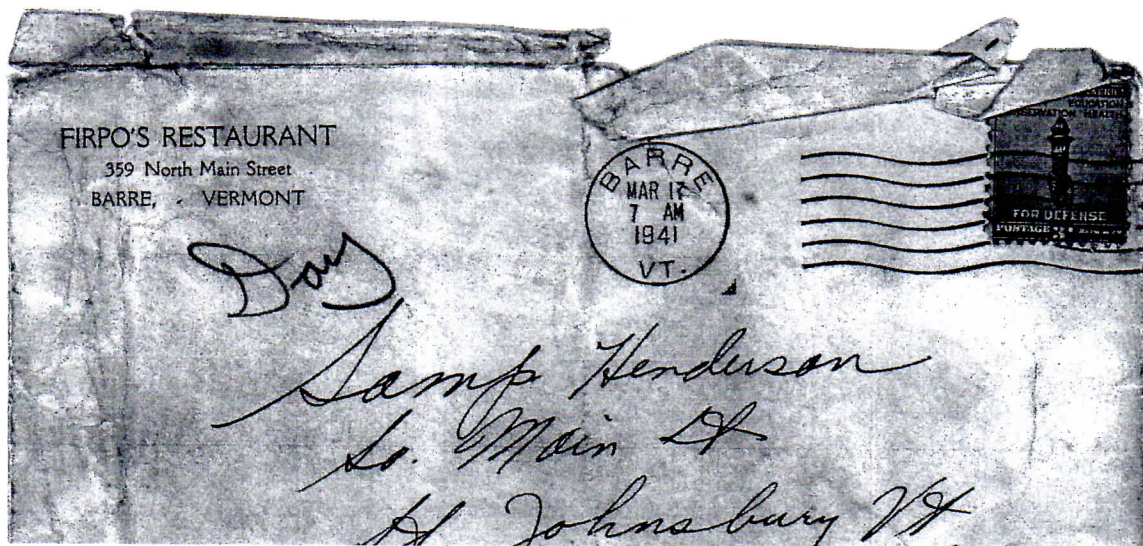 FIRPO'S RESTAURANT
359 North Main Street
BARRE, - VERMONT
BARRE
MAR 17
7 AM
1941
VT.
EDUCATION
HEALTH
FOR DEFENSE
POSTAGE 3
Samp Henderson
So. Main St
St Johnsbury Vt